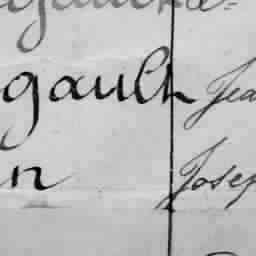 gault Jea
n Josep